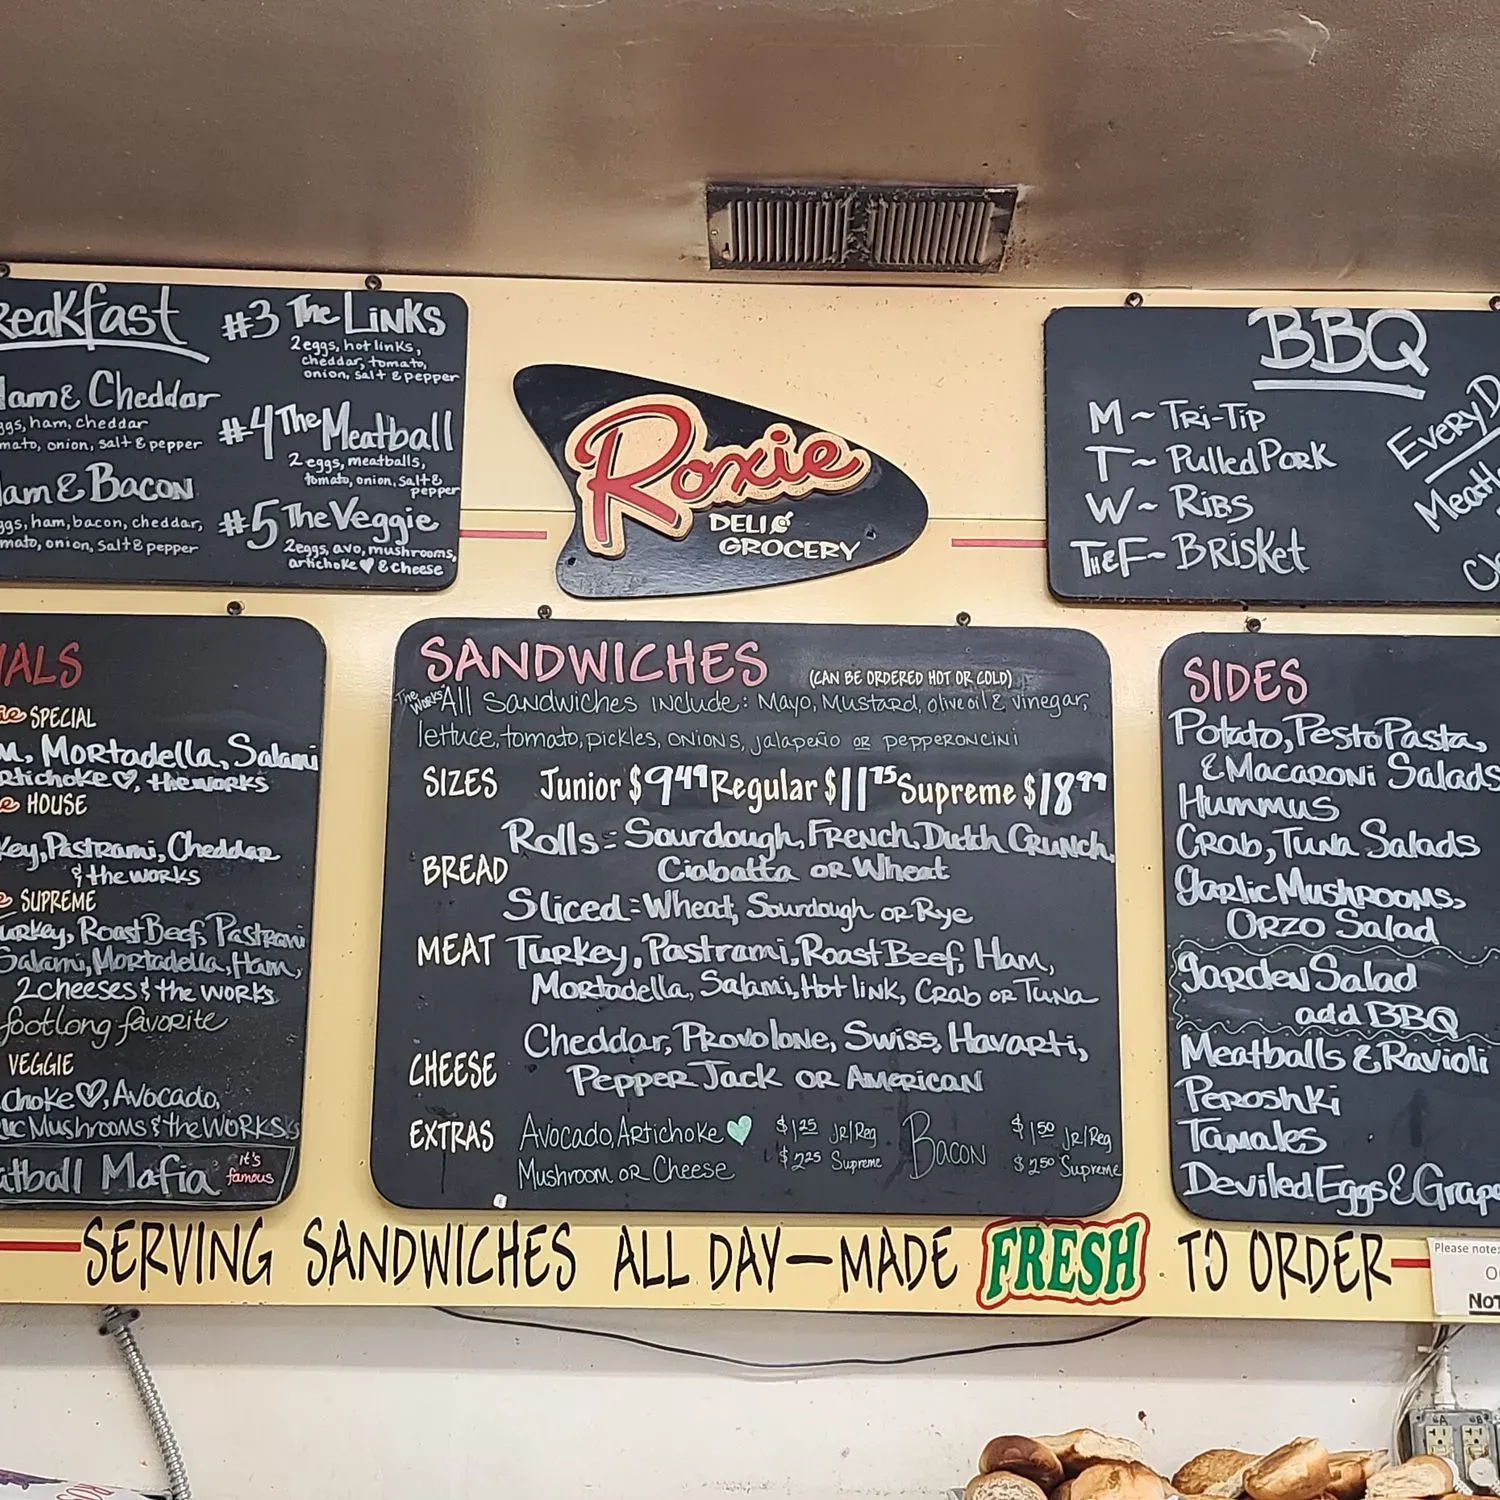 #3 The Links
2 eggs, hot links,
cheddar, tomato,
onion, salt & pepper
Ham & Cheddar
ham, cheddar
onion, salt & pepper
#4 The Meatball
2 eggs, meatballs,
tomato, onion, salt &
pepper
& Bacon
ham, bacon, cheddar,
onion, salt & pepper
#5 The Veggie
2 eggs, avo, mushrooms,
artichoke ♡ & cheese
Roxie
DELI &
GROCERY
BBQ
M ~ Tri-Tip
T ~ Pulled Pork
W ~ Ribs
TH & F ~ Brisket
SPECIAL
Mortadella, Salami
♡, the works
HOUSE
Pastrami, Cheddar
& the works
SUPREME
Roast Beef, Pastrami
Salami, Mortadella, Ham,
2 cheeses & the works
footlong favorite
VEGGIE
♡, Avocado,
Mushrooms & the works
Mafia it's
famous
SANDWICHES (CAN BE ORDERED HOT OR COLD)
"The Works" All sandwiches include: Mayo, Mustard, olive oil & vinegar,
lettuce, tomato, pickles, onions, jalapeño or pepperoncini
SIZES Junior $9.49 Regular $11.75 Supreme $18.99
BREAD Rolls = Sourdough, French, Dutch Crunch,
Ciabatta or Wheat
Sliced = Wheat, Sourdough or Rye
MEAT Turkey, Pastrami, Roast Beef, Ham,
Mortadella, Salami, Hot link, Crab or Tuna
CHEESE Cheddar, Provolone, Swiss, Havarti,
Pepper Jack or American
EXTRAS Avocado, Artichoke ♥ $1.25 Jr/Reg Bacon $1.50 Jr/Reg
Mushroom or Cheese $2.25 Supreme $2.50 Supreme
SIDES
Potato, Pesto Pasta,
& Macaroni Salads
Hummus
Crab, Tuna Salads
Garlic Mushrooms,
Orzo Salad
Garden Salad
add BBQ
Meatballs & Ravioli
Peroshki
Tamales
Deviled Eggs &
SERVING SANDWICHES ALL DAY—MADE FRESH TO ORDER
Please note: